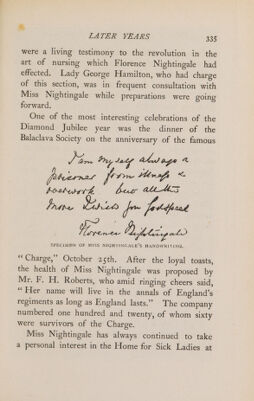 LATER YEARS 335
were a living testimony to the revolution in the
art of nursing which Florence Nightingale had
effected. Lady George Hamilton, who had charge
of this section, was in frequent consultation with
Miss Nightingale while preparations were going
forward.
One of the most interesting celebrations of the
Diamond Jubilee year was the dinner of the
Balaclava Society on the anniversary of the famous
I am myself always a
prisoner from illness &
overwork but all the
more I wish you God speed
Florence Nightingale
SPECIMEN OF MISS NIGHTINGALE'S HANDWRITING.
"Charge," October 25th. After the loyal toasts,
the health of Miss Nightingale was proposed by
Mr. F. H. Roberts, who amid ringing cheers said,
"Her name will live in the annals of England's
regiments as long as England lasts." The company
numbered one hundred and twenty, of whom sixty
were survivors of the Charge.
Miss Nightingale has always continued to take
a personal interest in the Home for Sick Ladies at